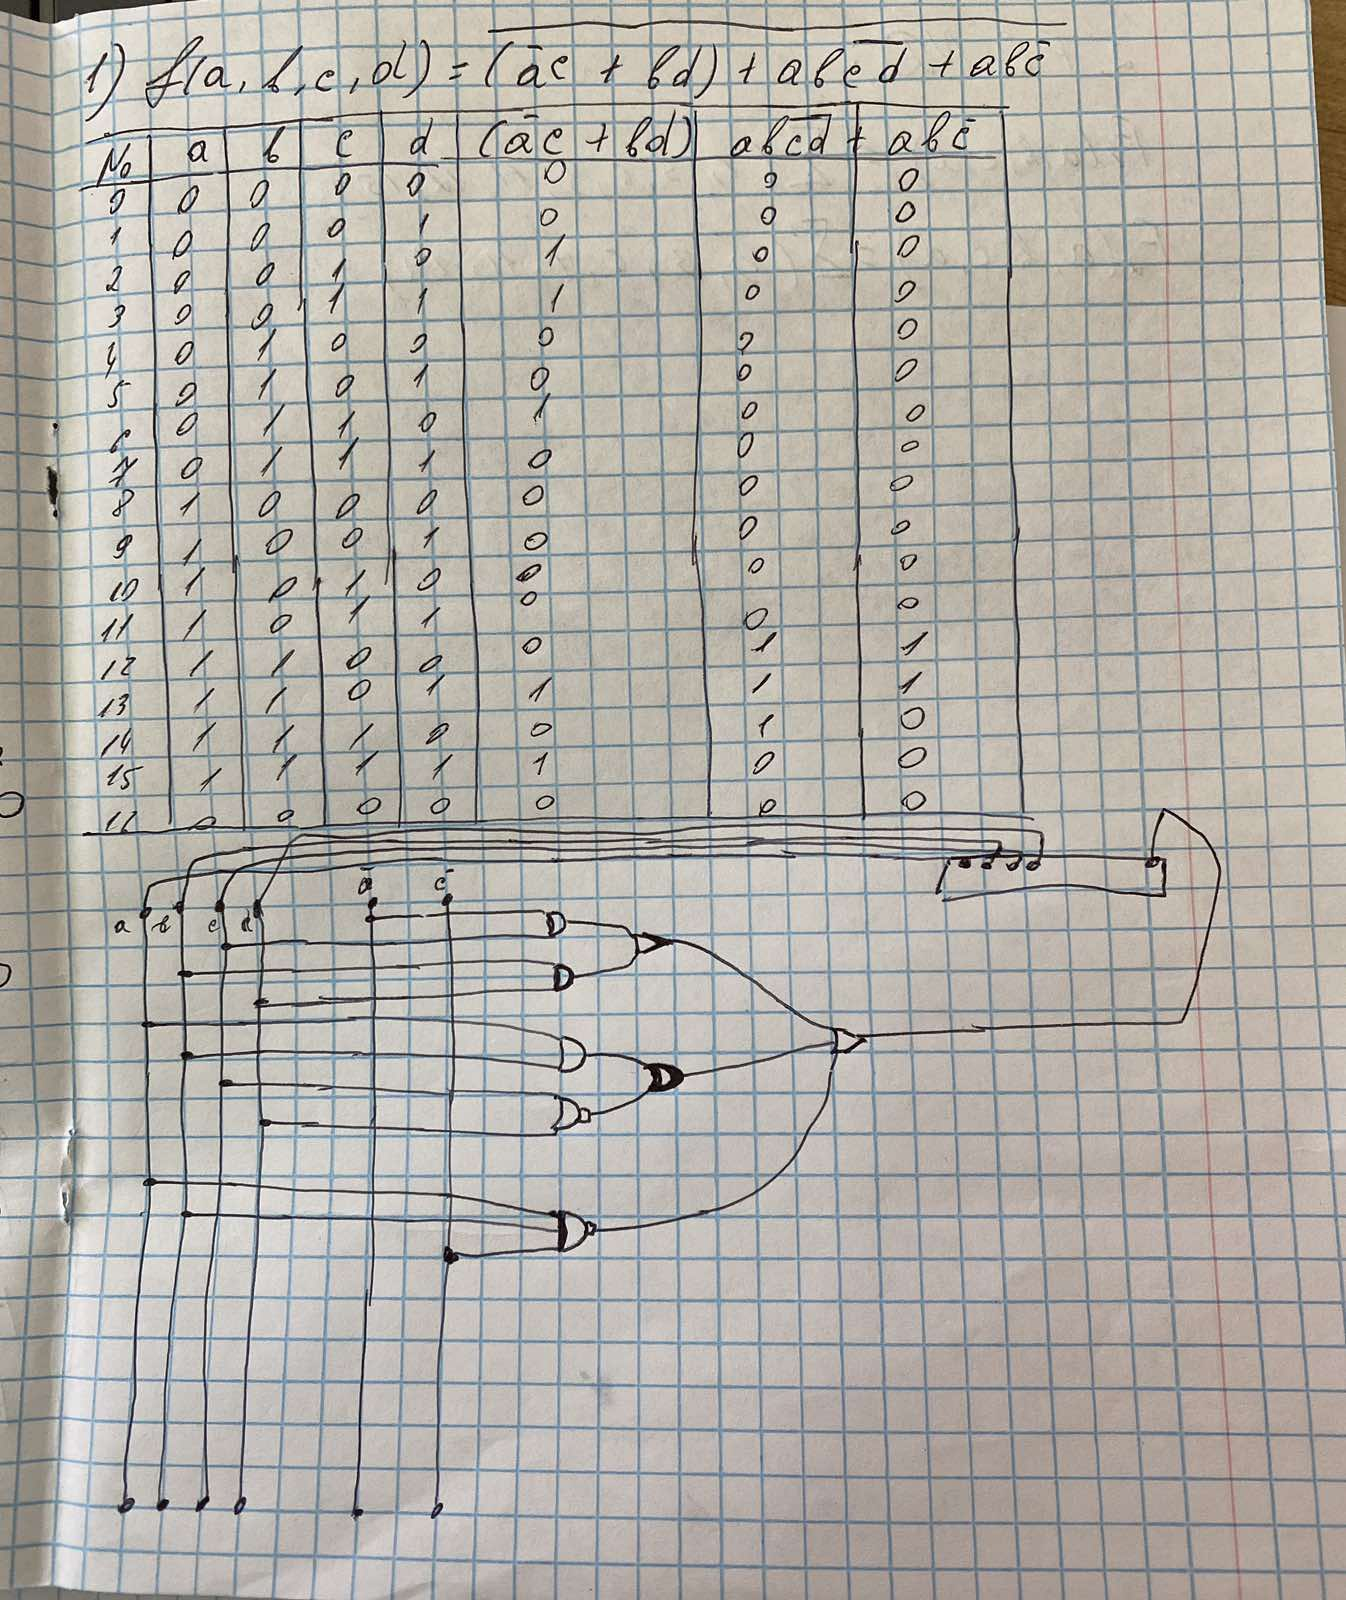 1) f(a, b, c, d) = (āc + bd) + abc̅d̅ + abc̄
№ a b c d (āc + bd) abc̅d̅ + abc̄
0 0 0 0 0 0 0 0
1 0 0 0 1 0 0 0
2 0 0 1 0 1 0 0
3 0 0 1 1 1 0 0
4 0 1 0 0 0 0 0
5 0 1 0 1 0 0 0
6 0 1 1 0 1 0 0
7 0 1 1 1 0 0 0
8 1 0 0 0 0 0 0
9 1 0 0 1 0 0 0
10 1 0 1 0 0 0 0
11 1 0 1 1 0 0 0
12 1 1 0 0 0 1 1
13 1 1 0 1 1 1 1
14 1 1 1 0 0 1 0
15 1 1 1 1 1 0 0
16 0 0 0 0 0 0 0
a b c d ā c̄